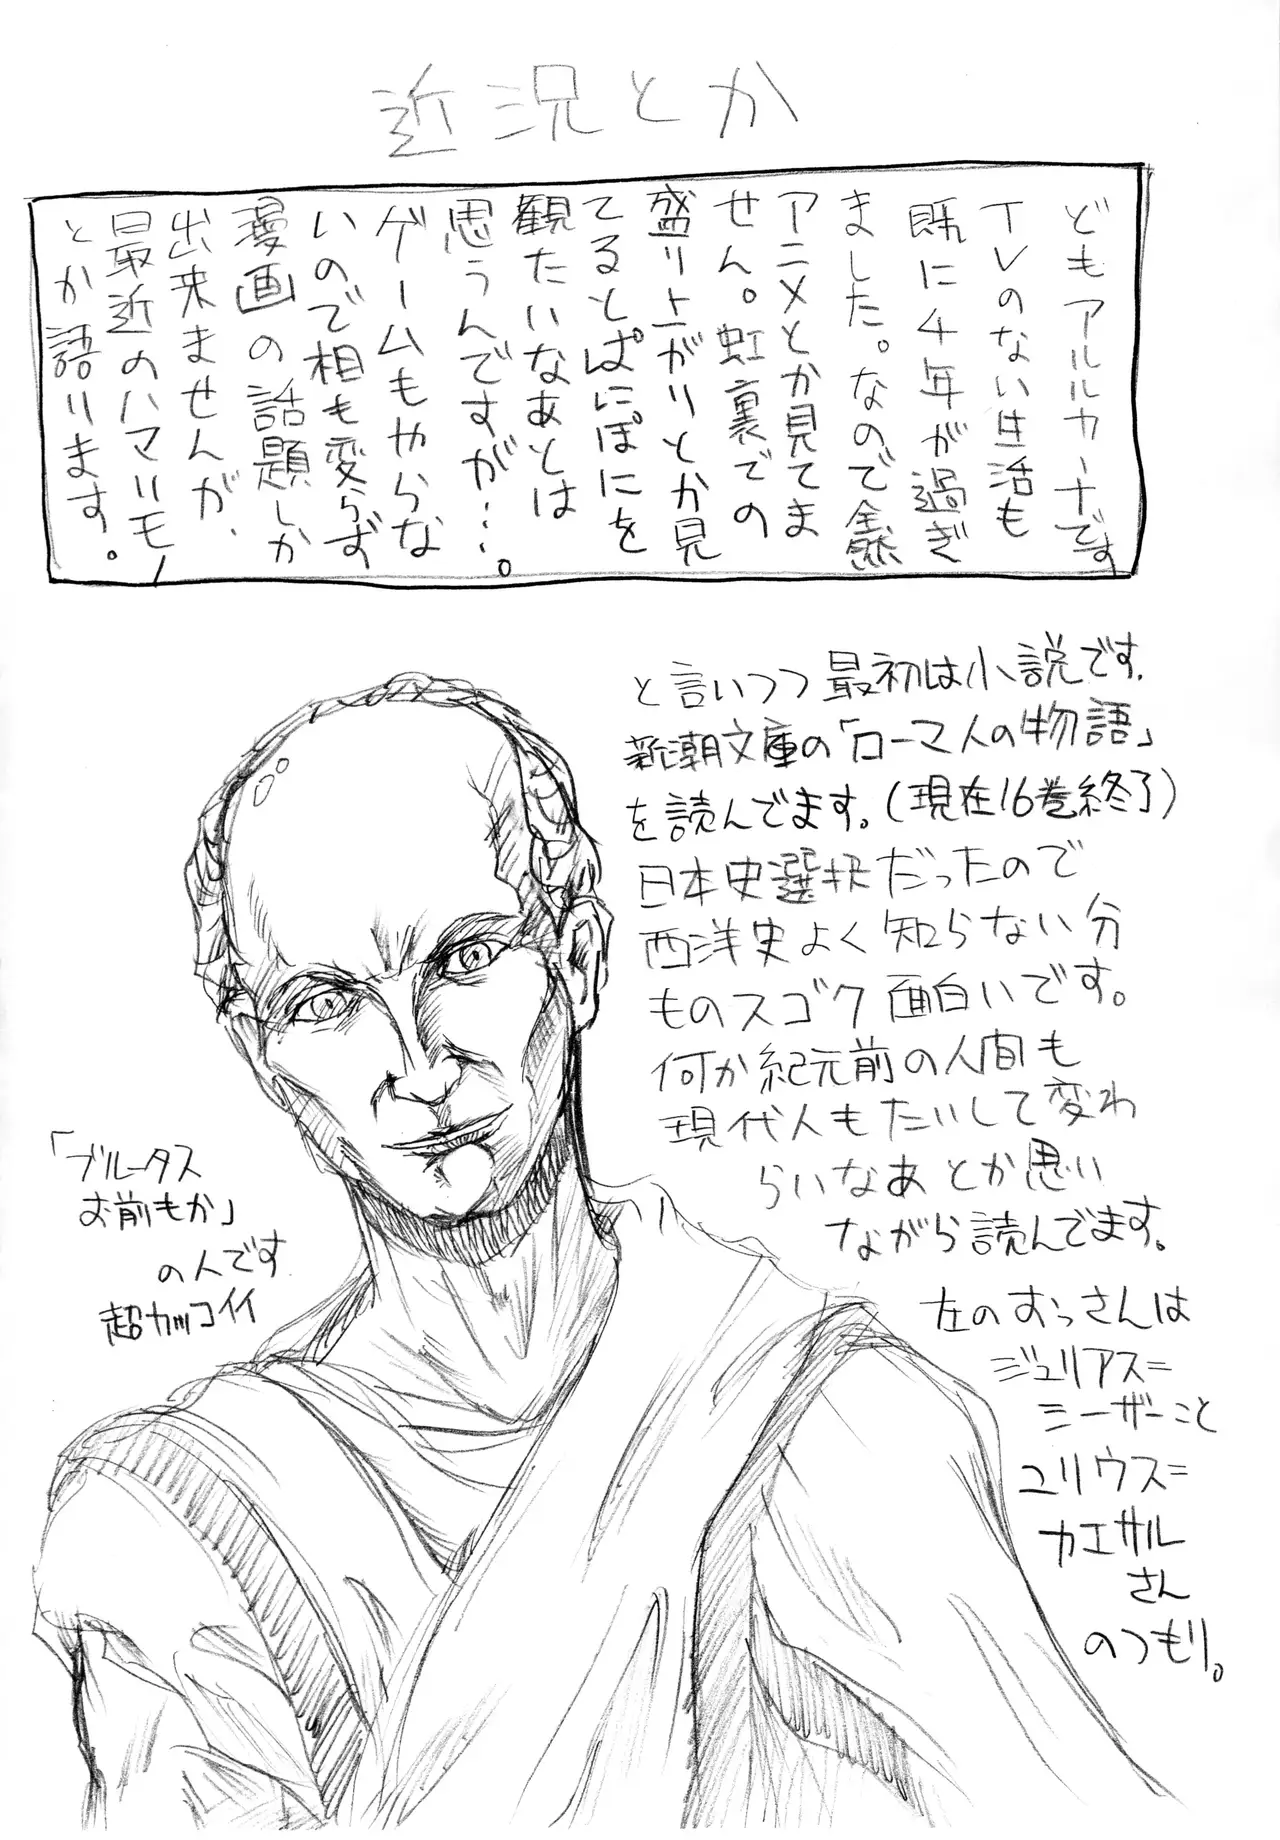 近況とか
どもアルルカーナです
TVのない生活も
既に4年が過ぎ
ました。なので全然
アニメとか見てま
せん。虹裏での
盛り上がりとか見
てるとぱにぽにを
観たいなあとは
思うんですが…。
ゲームもやらな
いので相も変らず
漫画の話題しか
出来ませんが、
最近のハマリモノ
とか語ります。
と言いつつ最初は小説です。
新潮文庫の「ローマ人の物語」
を読んでます。(現在16巻終了)
日本史選択だったので
西洋史よく知らない分
ものスゴク面白いです。
何か紀元前の人間も
現代人もたいして変わ
らいなあとか思い
ながら読んでます。
左のおっさんは
ジュリアス=
シーザーこと
ユリウス=
カエサル
さん
のつもり。
「ブルータス
お前もか」
の人です
超カッコイイ